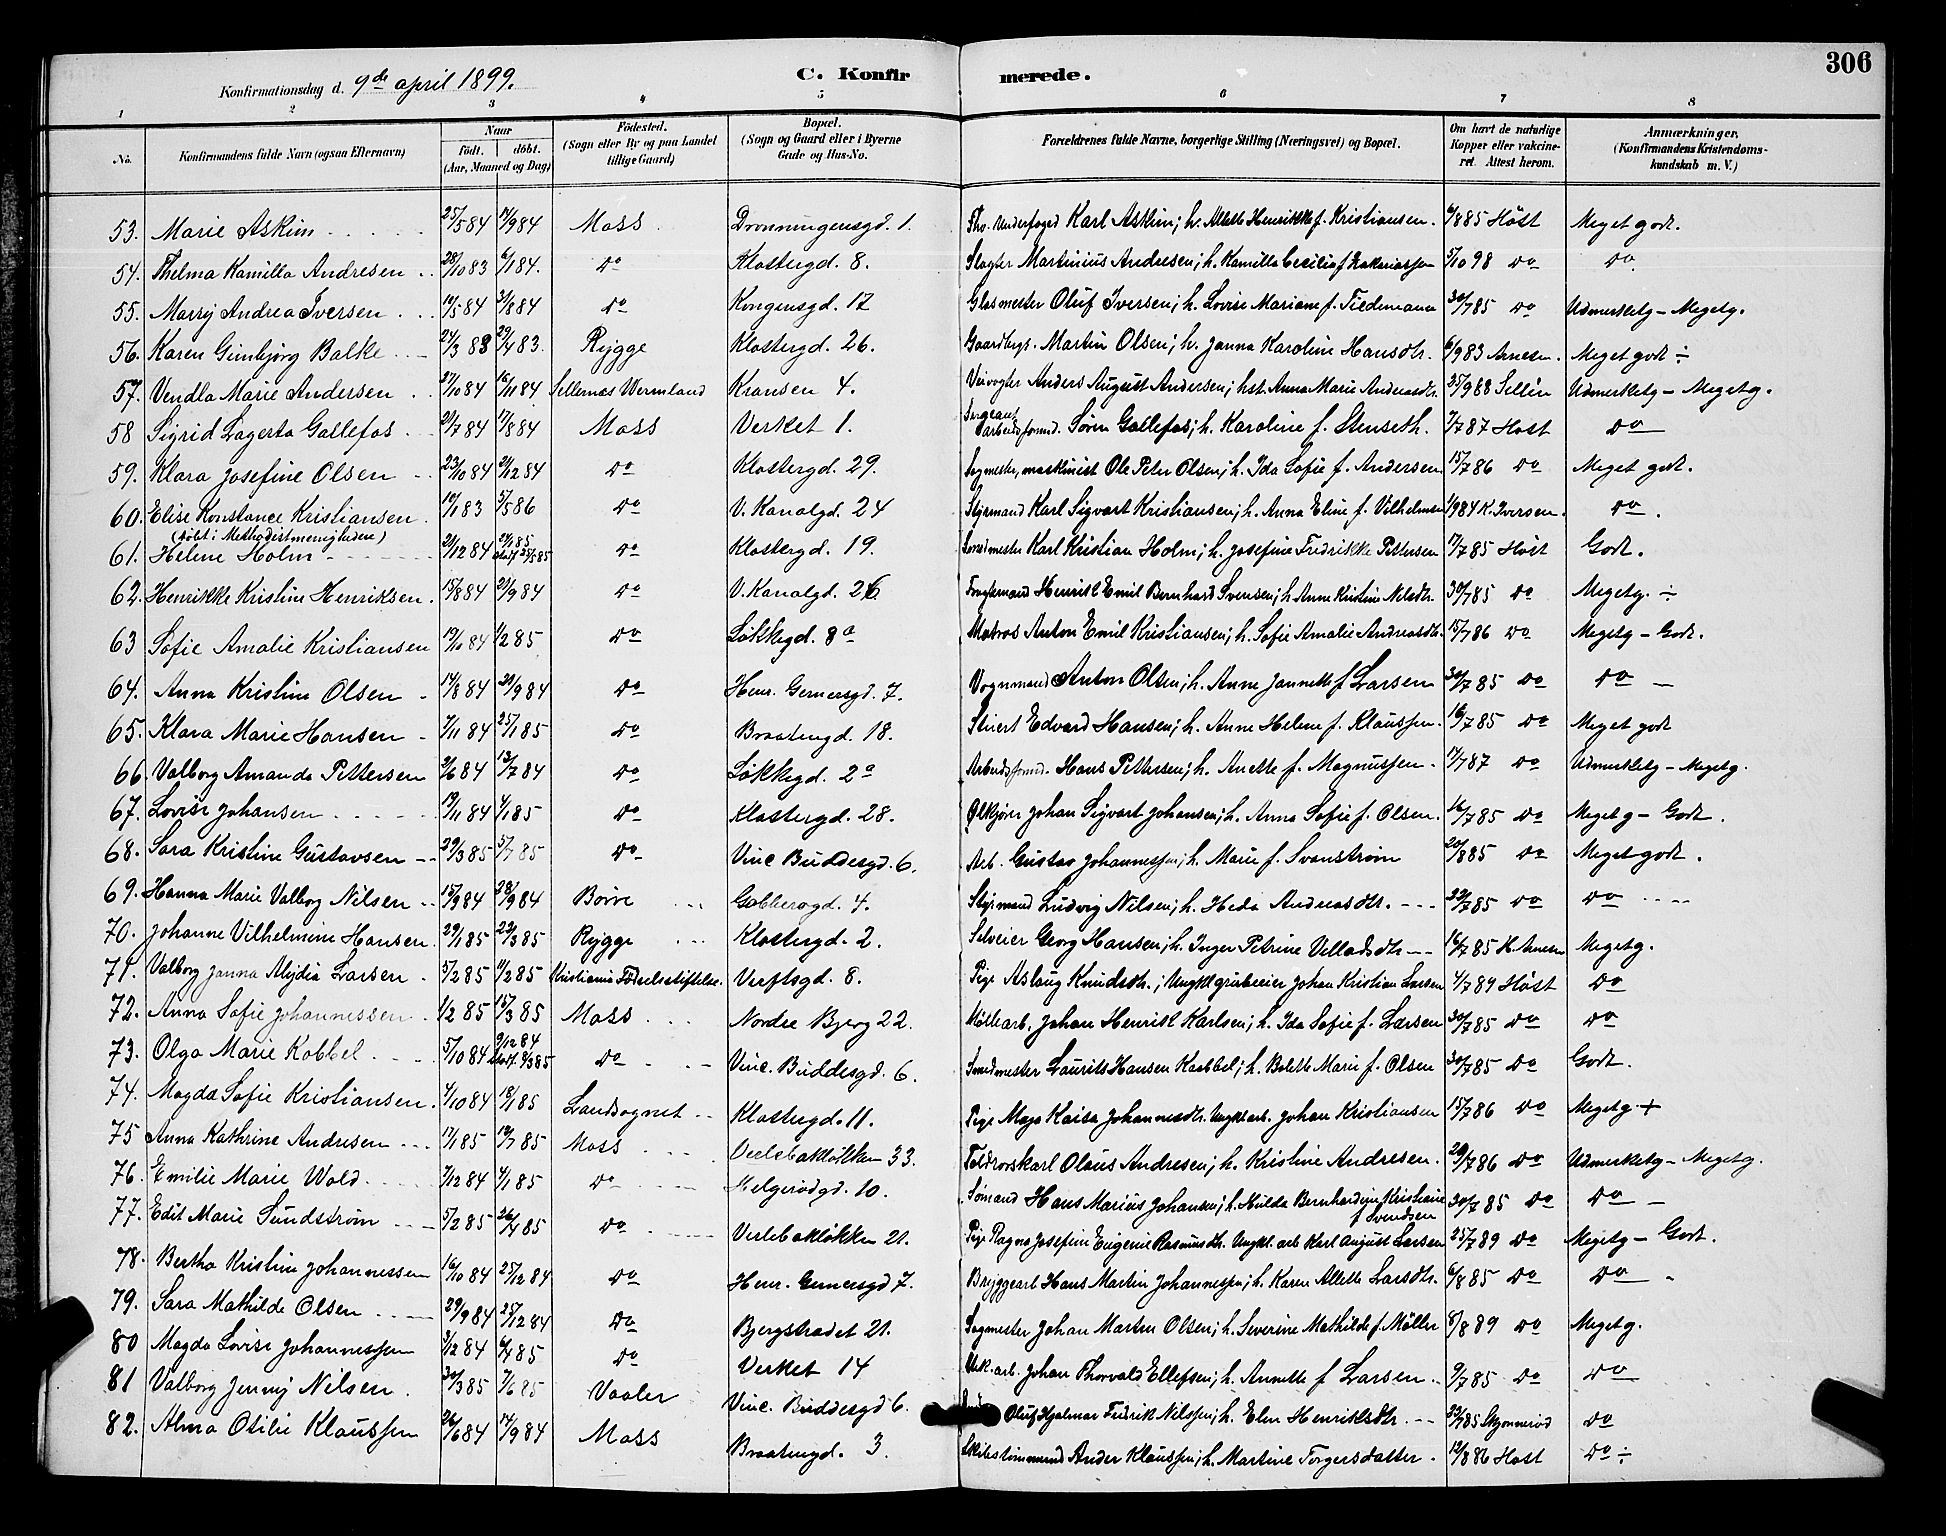 306
Konfirmationsdag d. 9de april 1899.
C. Konfirmerede.
1 2 3 4 5 6 7 8
No. Konfirmandens fulde Navn (ogsaa Efternavn) Naar født. døbt. (Aar, Maaned og Dag) Fødested. (Sogn eller By og paa Landet tillige Gaard) Bopæl. (Sogn og Gaard eller i Byerne Gade og Hus-No. Forældrenes fulde Navne, borgerlige Stilling (Næringsvei) og Bopæl. Om havt de naturlige Kopper eller vakcineret. Attest herom. Anmærkninger. (Konfirmandens Kristendomskundskab m. V.)
53. Marie Askim 25/5 84 14/9 84 Moss Dronningensgd. 1. Karl Askim; h. Alette Henrikke f. Kristiansen. 6/8 85 Høst Meget godt.
54. Thelma Kamilla Andresen 28/10 83 6/1 84. Do Klostergd. 8. Slagter Martinius Andresen; h. Kamilla Cecilia f. Zakariassen 5/10 98 Do Do
55. Marry Andrea Iversen 10/5 84 3/8 84 Do Kongensgd. 17 Glasmester Oluf Iversen; h. Lovise Mariane f. Tiedemann 30/7 85 Do Udmerketg - Megetg.
56. Karen Gunbjørg Balke 24/3 83 29/4 83. Rygge Klostergd. 26. Gaardbrgs. Martin Olsen; h. Janna Karoline Hansdtr. 6/9 83 Arnesen. Meget godt ÷
57. Vendla Marie Andersen 27/10 84 16/11 84 Sellernæs Wermland Kransen 4. Veivogter Anders August Andersen; hst. Anna Marie Andreasdtr. 25/9 88 Sellén Udmerketg - Megetg.
58 Sigrid Lagerta Gallefos 21/7 84 17/8 84 Moss Verket 1. Sergeant arbeidsformd. Søren Gallefos; h. Karoline f. Stenseth. 7/7 87 Høst Do
59. Klara Josefine Olsen 23/10 84 21/12 84 Do Klostergd. 29. Sagmester, maskinist Ole Peter Olsen; h. Ida Sofie f. Andersen 15/7 86 Do Meget godt.
60. Elise Konstance Kristiansen 10/1 83 5/5 86 Do V. Kanalgd. 24 Styrmand Karl Sigvart Kristiansen; h. Anna Eline f. Vilhelmsen 1/9 84 K. Iversen. Do.
(døbt i Methodistmenigheden)
61. Helene Holm 21/12 84 29/1 85 stadf. 25/1 85 Do Klostergd. 19. Smedmester Karl Kristian Holm; h. Josefine Fredrikke Pettersen 17/7 85 Høst Godt.
62. Henrikke Kristine Henriksen. 15/8 84 21/9 84 Do V. Kanalgd. 26 Henrik Emil Bernhard Svensen; h. Anne Kristine Nilsdtr. 30/7 85 Do Megetg. ÷
63 Sofie Amalie Kristiansen 19/10 84 1/2 85 Do Løkkegd. 8a Matros Anton Emil Kristiansen; h. Sofie Amalie Andreasdtr. 15/7 86 Do Megetg - Godt.
64. Anna Kristine Olsen 14/8 84 21/9 84 Do Henr. Gernersgd. 7. Vognmand Anton Olsen; h. Anne Jannette f. Larsen 30/7 85 Do Do
65. Klara Marie Hansen 7/11 84 25/1 85 Do Braatengd. 18. Stuert Edvard Hansen; h. Anne Helene f. Klaussen. 16/7 85 Do Meget godt
66. Valborg Amanda Pettersen 2/6 84 13/7 84 Do Løkkegd. 2a Arbeidsformd. Hans Pettersen; h. Anette f. Magnussen 17/7 87 Do Udmerketg - Megetg.
67. Lovise Johansen 19/11 84 4/1 85 Do Klostergd. 28. Ølkjører Johan Sigvart Johansen; h. Anna Sofie f. Olsen. 16/7 85 Do Megetg - Godt.
68. Sara Kristine Gustavsen 29/3 85 5/7 85 Do Vinc Buddesgd. 6. Arb. Gustav Johannessen; h. Marie f. Svenstrøm 20/8 85 Do Meget godt.
69. Hanna Marie Valborg Nilsen 15/9 84 28/9 84 Borre Gabbergd. 4. Styrmand Ludvig Nilsen; h. Heda Andreasdtr. 22/7 85 Do Do
70. Johanne Vilhelmine Hansen 29/1 85 22/3 85 Rygge Klostergd. 2. Selveier Georg Hansen; h. Inger Petrine Velladsdtr 16/7 85 H. Arnesen Megetg.
71. Valborg Janna Alydia Larsen 5/2 85 11/2 85 Kristiania Fødselsstiftelse. Verftsgd. 8. Pige Aslaug Knudsdtr.; Ungkl grubeeier Johan Kristian Larsen 4/7 89 Høst Do
72. Anna Sofie Johannessen 1/2 85 15/3 85 Moss Nordre Bjerg 22. Møllearb. Johan Henrik Karlsen; h. Ida Sofie f. Larsen 30/7 85 Do Do
73. Olga Marie Kobbel 5/10 84 9/12 84 stadf. 8/3 85 Do Vinc. Buddesgd. 6. Smedmester Laurits Hansen Kaabbel; h. Bolette Marie f. Olsen 30/7 85 Do Godt.
74. Magda Sofie Kristiansen 4/10 84 18/1 85 Landsognet Klostergd. 11. Pige Maja Kaisa Johannesdtr. Ungkl arb. Johan Kristiansen 15/7 86 Do Megetg +
75 Anna Kathrine Andresen 17/1 85 19/7 85 Moss Verlebakløkken 33. Toldrorskarl Olaus Andresen; h. Kristine Andresen. 29/7 86 Do Udmerketg - Megetg.
76. Emilie Marie Wold 7/12 84 4/1 85 Do Helgerødgd. 10. Sømand Hans Marius Johansen; h. Hulda Bernhardine Kristiane f. Svendsen 30/7 85 Do Do
77. Edit Marie Sundstrøm 5/2 85 26/4 85 Do Verlebakløkken 21. Pige Ragna Josefine Eugenie Rasmusdtr. Ungkl. arb Karl August Larsen 25/7 89 Do Megetg - Godt.
78. Bertha Kristine Johannessen 16/10 84 25/12 84 Do Henr. Gernersgd 7. Bryggearb Hans Martin Johannessen; h. Karen Alette Larsdtr. 6/8 85 Do Do
79. Sara Mathilde Olsen 29/9 84 25/12 84 Do Bjergstrædet 21. Sagmester Johan Martin Olsen; h. Severine Mathilde f. Møller 8/8 89 Do Megetg.
80 Magda Lovise Johannessen 3/12 84 6/4 85 Do Verket 14 Verk.arb. Johan Thorvald Ellefsen; h. Annette f Larsen 9/7 85 Do Do
81 Valborg Jenny Nilsen. 30/3 85 7/6 85 Vaaler Vinc. Buddesgd 6. Oluf Hjalmar Fredrik Nilssen; h. Elen Henriksdtr. 22/7 85 Do
82. Alma Otilie Klaussen 26/6 84 14/9 84 Moss Braatengd. 3. Skibstømmermand Ander Klaussen; h. Martine Torgersdatter. 12/8 86 Høst Do ÷